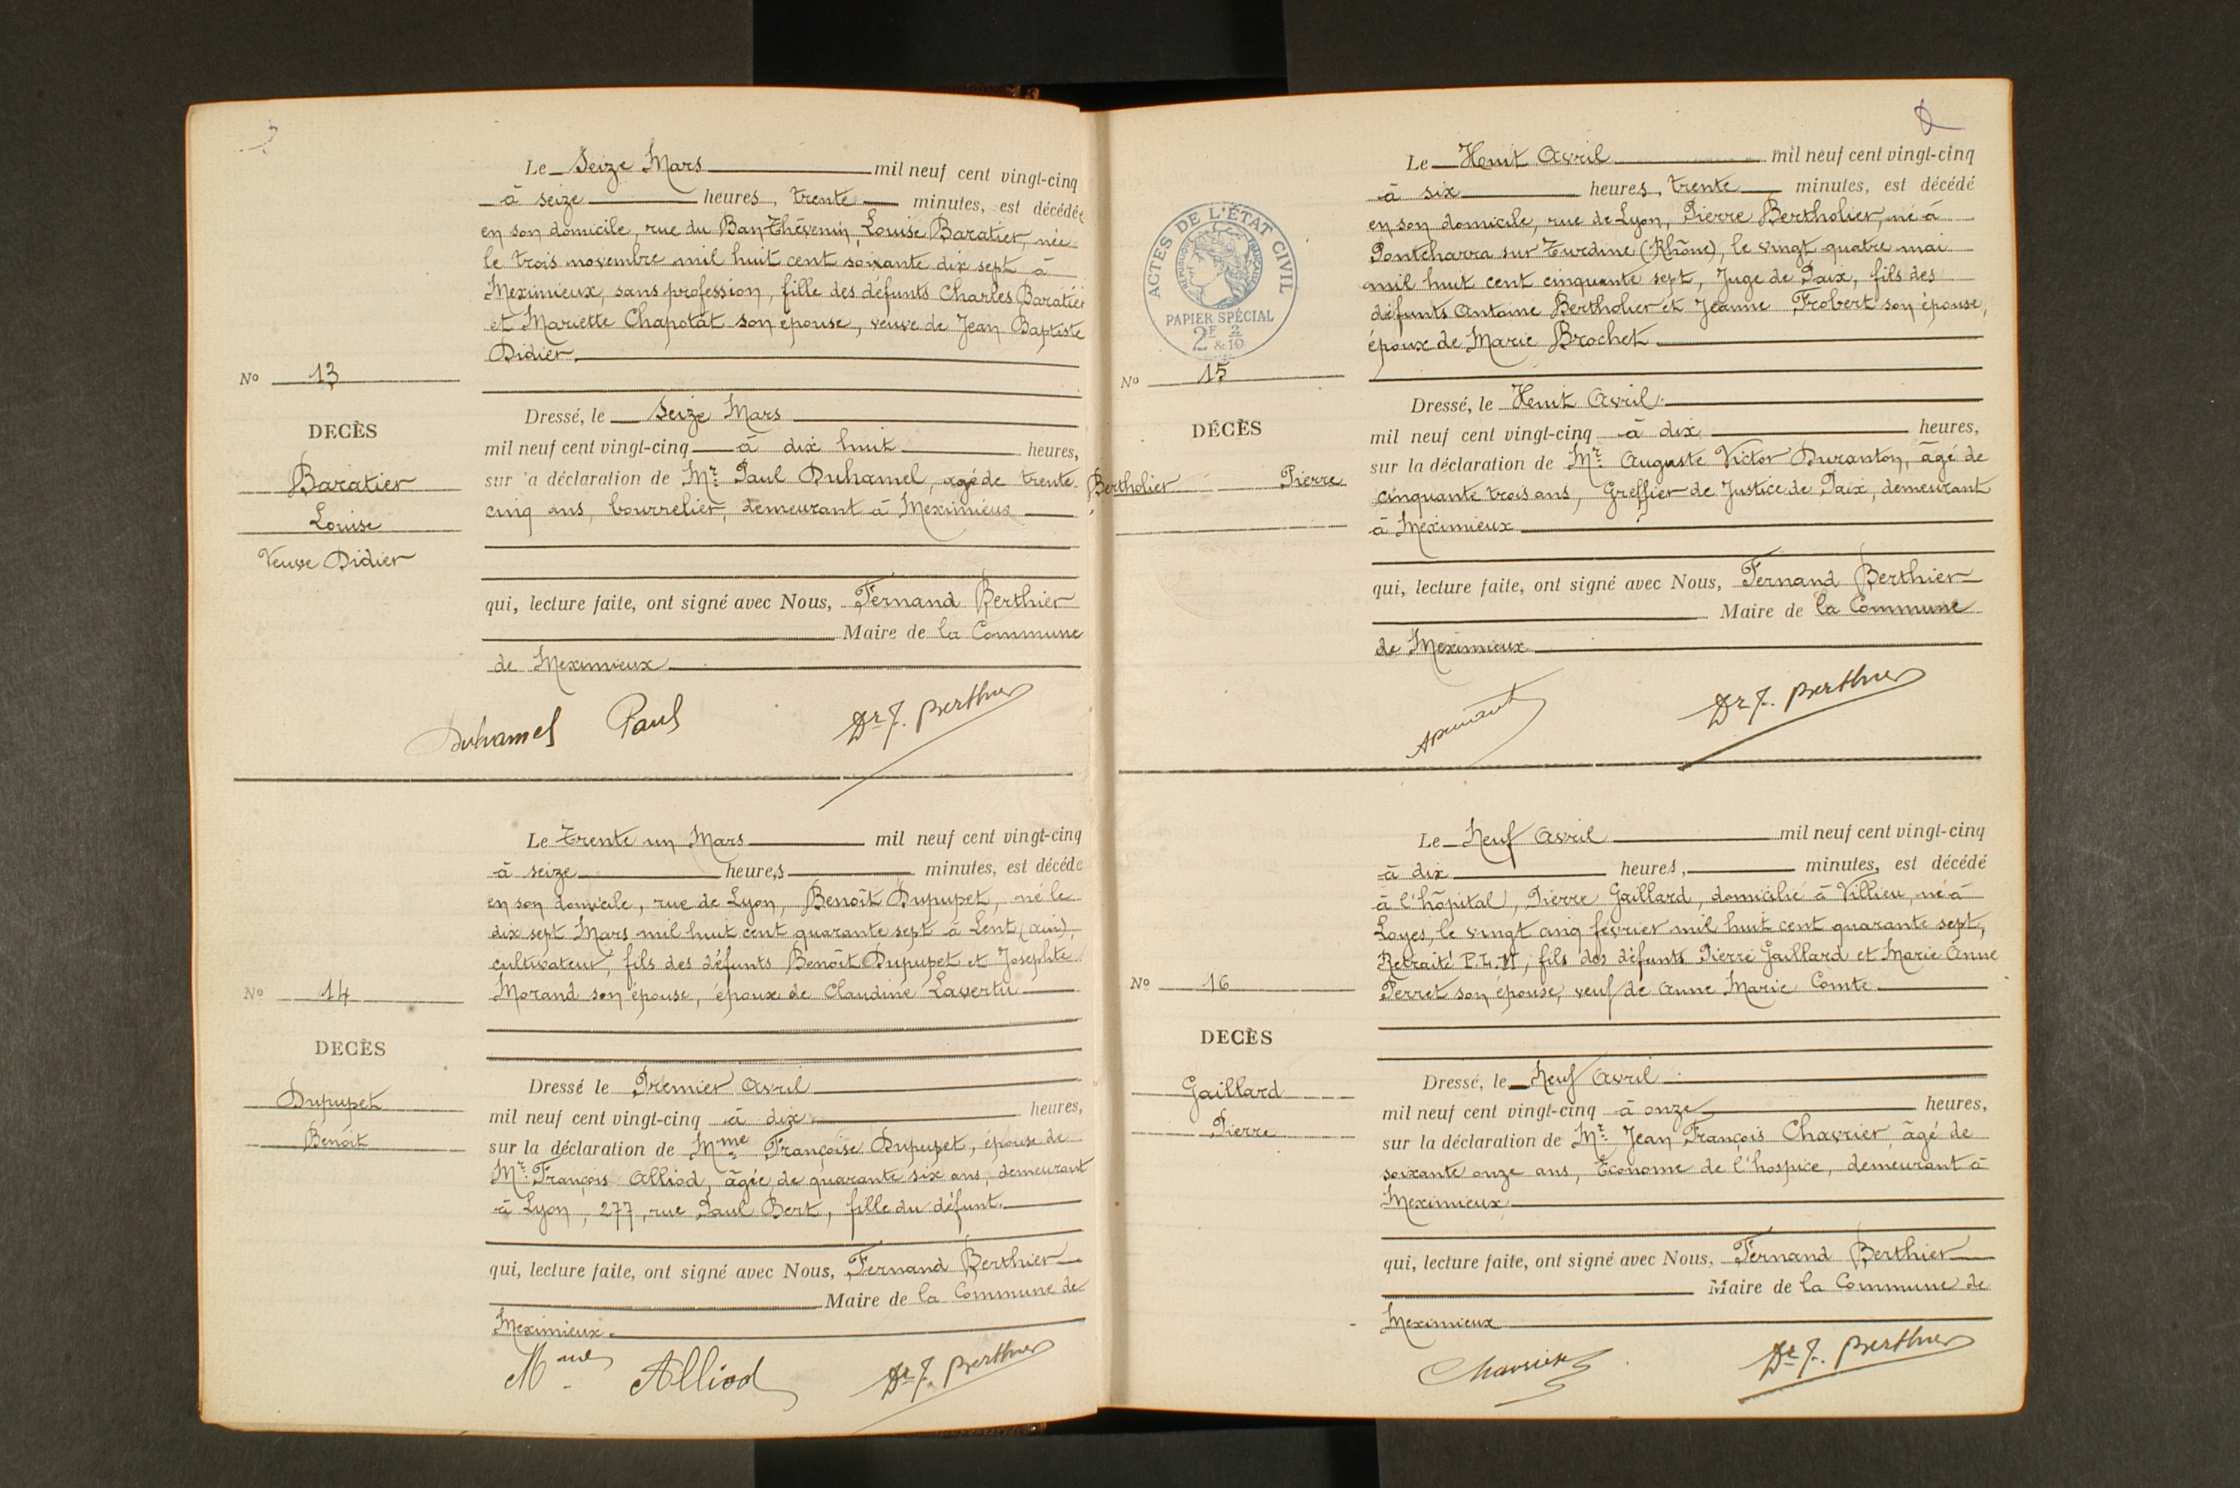 Le Seize Mars mil neuf cent vingt-cinq
à seize heures, trente minutes, est décédée
en son domicile, rue du Ban-Thévenin, Louise Baratier, née
le trois novembre mil huit cent soixante dix sept à
Meximieux, sans profession, fille des défunts Charles Baratier
et Mariette Chapotat son épouse, veuve de Jean Baptiste
Didier.
No 13
DECÈS
Baratier
Louise
Veuve Didier
Dressé, le Seize Mars
mil neuf cent vingt-cinq à dix huit heures,
sur la déclaration de Mr Paul Duhamel, agé de trente
cinq ans, bourrelier, demeurant à Meximieux
qui, lecture faite, ont signé avec Nous, Fernand Berthier
Maire de la Commune
de Meximieux
Duhamel Paul Dr F. Berthier
Le trente un Mars mil neuf cent vingt-cinq
à seize heures minutes, est décédé
en son domicile, rue de Lyon, Benoît Dupupet, né le
dix sept Mars mil huit cent quarante sept à Lent (ain),
cultivateur, fils des défunts Benoît Dupupet et Josephte
Morand son épouse, époux de Claudine Lavertu
No 14
DECÈS
Dupupet
Benoit
Dressé le Premier avril
mil neuf cent vingt-cinq à dix heures,
sur la déclaration de Mme Françoise Dupupet, épouse de
Mr François Alliod, âgée de quarante six ans, demeurant
à Lyon, 277, rue Paul Bert, fille du défunt.
qui, lecture faite, ont signé avec Nous, Fernand Berthier
Maire de la Commune de
Meximieux.
Mme Alliod Dr F. Berthier
Le Huit Avril mil neuf cent vingt-cinq
à six heures, trente minutes, est décédé
en son domicile, rue de Lyon, Pierre Bertholier, né à
Pontcharra sur Turdine (Rhône), le vingt quatre mai
mil huit cent cinquante sept, Juge de Paix, fils des
défunts Antoine Bertholier et Jeanne Frobert son épouse,
époux de Marie Brochet
ACTES DE L'ÉTAT CIVIL
RÉPUBLIQUE FRANÇAISE
PAPIER SPÉCIAL
2F & 2/10
No 15
DÉCÈS
Bertholier Pierre
Dressé, le Huit Avril.
mil neuf cent vingt-cinq à dix heures,
sur la déclaration de Mr Auguste Victor Duranton, âgé de
cinquante trois ans, Greffier de Justice de Paix, demeurant
à Meximieux
qui, lecture faite, ont signé avec Nous, Fernand Berthier
Maire de la Commune
de Meximieux
Dr F. Berthier
Le Neuf avril mil neuf cent vingt-cinq
à dix heures, minutes, est décédé
à l'hôpital, Pierre Gaillard, domicilié à Villieu, né à
Loyes, le vingt cinq février mil huit cent quarante sept,
Retraité P.L.M, fils des défunts Pierre Gaillard et Marie Anne
Perret son épouse, veuf de Anne Marie Comte
No 16
DECÈS
Gaillard
Pierre
Dressé, le Neuf avril
mil neuf cent vingt-cinq à onze heures,
sur la déclaration de Mr Jean François Chavrier, âgé de
soixante onze ans, Econome de l'hospice, demeurant à
Meximieux
qui, lecture faite, ont signé avec Nous, Fernand Berthier
Maire de la Commune de
Meximieux
Chavrier Dr F. Berthier